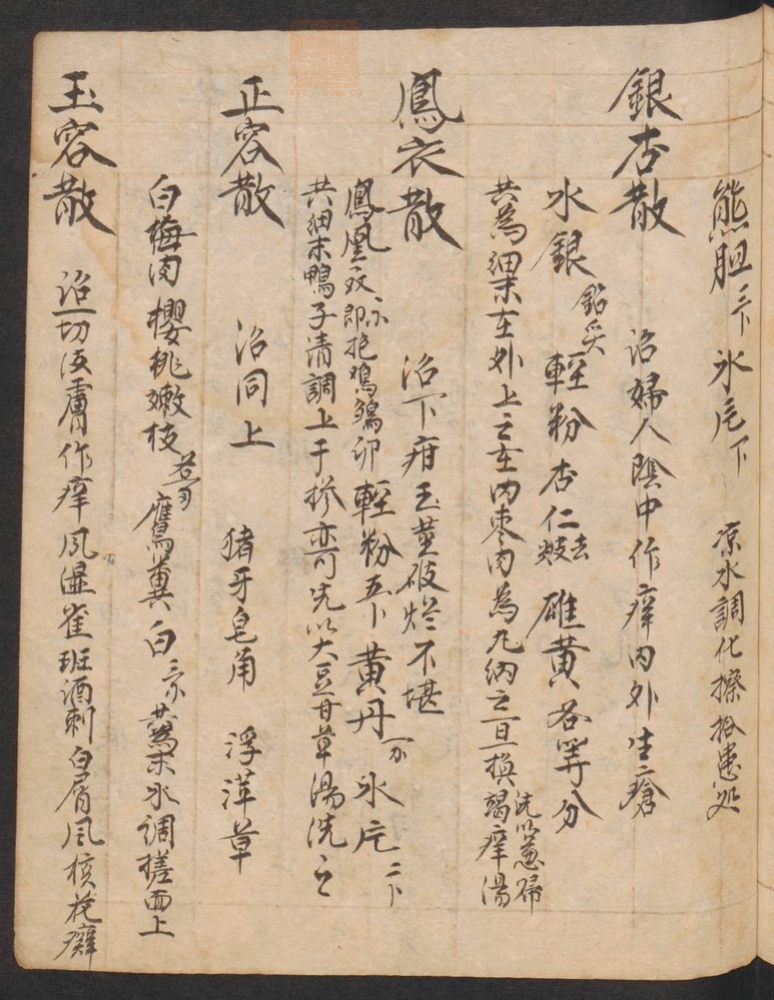 熊胆三卜 氷片下 凉水調化擦拾患处
銀杏散 治婦人陰中作痒内外生瘡
水銀鉛炙 輕粉 杏仁去皴 雄黄各等分
共為細末在外上之在内枣肉為丸納之一旦一換洗以蔥帰蝎痒湯
鳳衣散 治下疳玉莖破烂不堪
鳳凰衣 即抱鳮鷄卵 輕粉五卜 黄丹一分 氷片二卜
共細末鴨子清調上干摻亦可先以大豆甘草湯洗之
正容散 治同上 猪牙皂角 浮萍草
白梅肉 櫻桃嫩枝 鷹糞白三 為末水调搓面上
玉容散 治一切皮膚作痒風湿雀斑酒刺白屑風核花癣